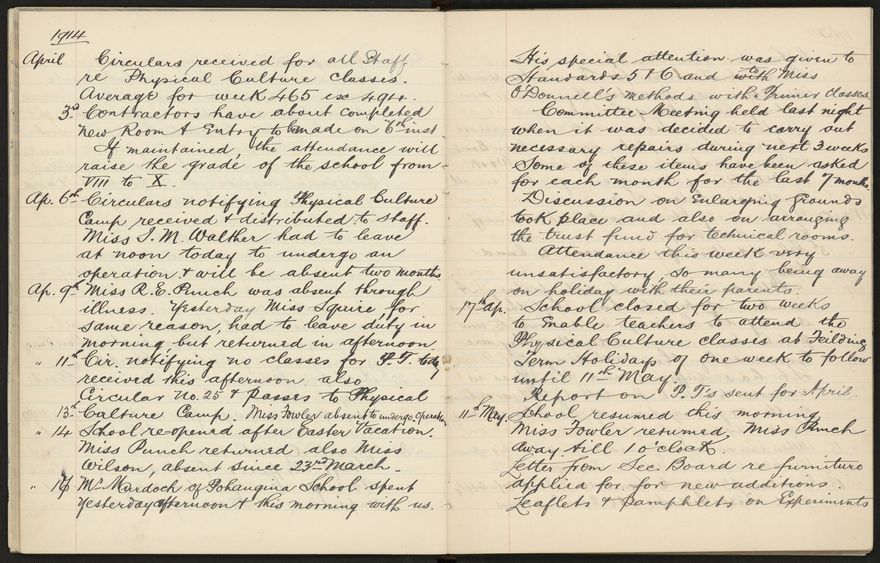 1914
April Circulars received for all Staff
re Physical Culture Classes.
Average for week 465 ex 494.
3rd Contractors have about completed
New Room & Entry to be made on 6th inst
If maintained, the attendance will
raise the grade of the school from
VIII to X.
Ap. 6th Circulars notifying Physical Culture
Camp received & distributed to staff.
Miss I. M. Walther had to leave
at noon today to undergo an
operation & will be absent two months
Ap. 9th Miss R. E. Punch was absent through
illness. Yesterday Miss Squire, for
same reason, had to leave duty in
morning but returned in afternoon.
" 11th Cir. notifying no classes for P.T. today
received this afternoon also
Circular No. 25 & Passes to Physical
13th Culture Camp. Miss Fowler absent to undergo operation
" 14 School re-opened after Easter Vacation.
Miss Punch returned also Miss
Wilson, absent since 23rd March.
" 17 Mr Murdoch of Pohangina School spent
yesterday afternoon & this morning with us.
His special attention was given to
Standards 5 & 6 and with Miss
O'Donnell's methods with Primer Classes.
Committee Meeting held last night
when it was decided to carry out
necessary repairs during next 3 weeks
Some of these items have been asked
for each month for the last 7 months.
Discussion on Enlarging grounds
took place and also on arranging
the trust fund for technical rooms.
Attendance this week very
unsatisfactory, so many being away
on holiday with their parents.
17th Ap. School closed for two weeks
to enable teachers to attend the
Physical Culture classes at Feilding
Term Holidays of one week to follow
until 11th May.
Report on P.T's sent for April.
11th May. School resumed this morning.
Miss Fowler returned, Miss Punch
away till 1 o'clock.
Letter from Sec. Board re furniture
applied for for new additions.
Leaflets & Pamphlets on Experiments